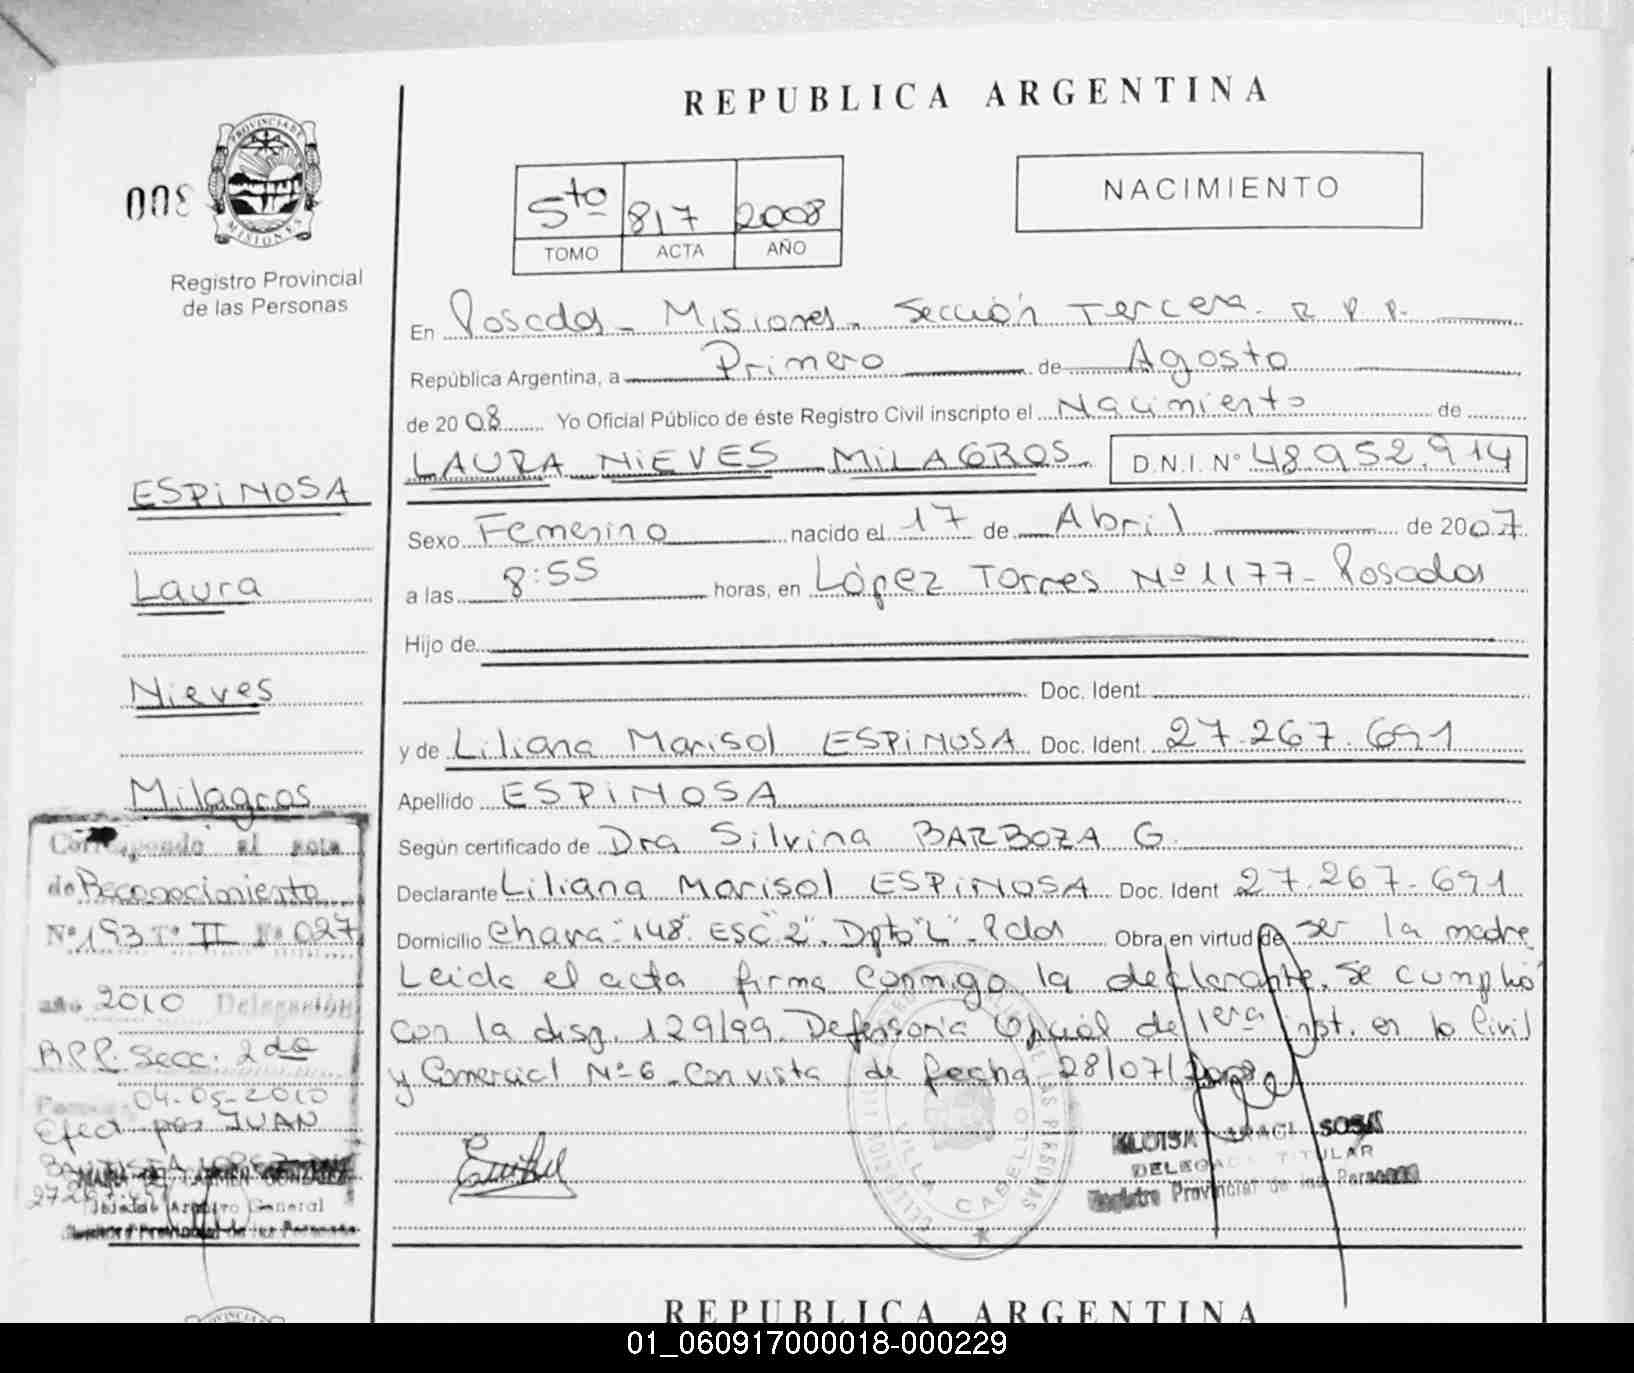 REPUBLICA ARGENTINA
PROVINCIA DE
MISIONES
003
Registro Provincial
de las Personas
5to 817 2008
TOMO ACTA AÑO
NACIMIENTO
En Posadas - Misiones - Sección Tercera. R. P. P.
República Argentina, a Primero de Agosto
de 2008 Yo Oficial Público de éste Registro Civil inscripto el Nacimiento de
LAURA NIEVES MILAGROS D.N.I. N° 48.952.914
Sexo Femenino nacido el 17 de Abril de 2007
a las 8:55 horas, en López Torres Nº 1177 - Posadas
Hijo de
Doc. Ident.
y de Liliana Marisol ESPINOSA Doc. Ident. 27.267.691
Apellido ESPINOSA
Según certificado de Dra Silvina BARBOZA G.
Declarante Liliana Marisol ESPINOSA Doc. Ident 27.267.691
Domicilio Chacra "148" ESC "2" Dpto "L" - Pdas Obra en virtud de ser la madre
Leida el acta firma conmigo la declarante. Se cumplió
con la disp. 129/99. Defensoria Oficial de 1era inst. en lo Civil
y Comercial Nº 6 - Con vista de fecha 28/07/2008
ESPINOSA
Laura
Nieves
Milagros
Corresponde al acta
de Reconocimiento
Nº 193 Tº II Fº 027
año 2010 Delegación
R.P.P. Secc. 2da
04-05-2010
Efect. por JUAN
BAUTISTA LOPEZ
MARIA DEL CARMEN GONZALEZ
Archivo General
Registro Provincial de las Personas
VILLA CABELLO
DE LAS PERSONAS
SOSA
DELEGADA TITULAR
Registro Provincial de las Personas
REPUBLICA ARGENTINA
01_060917000018-000229